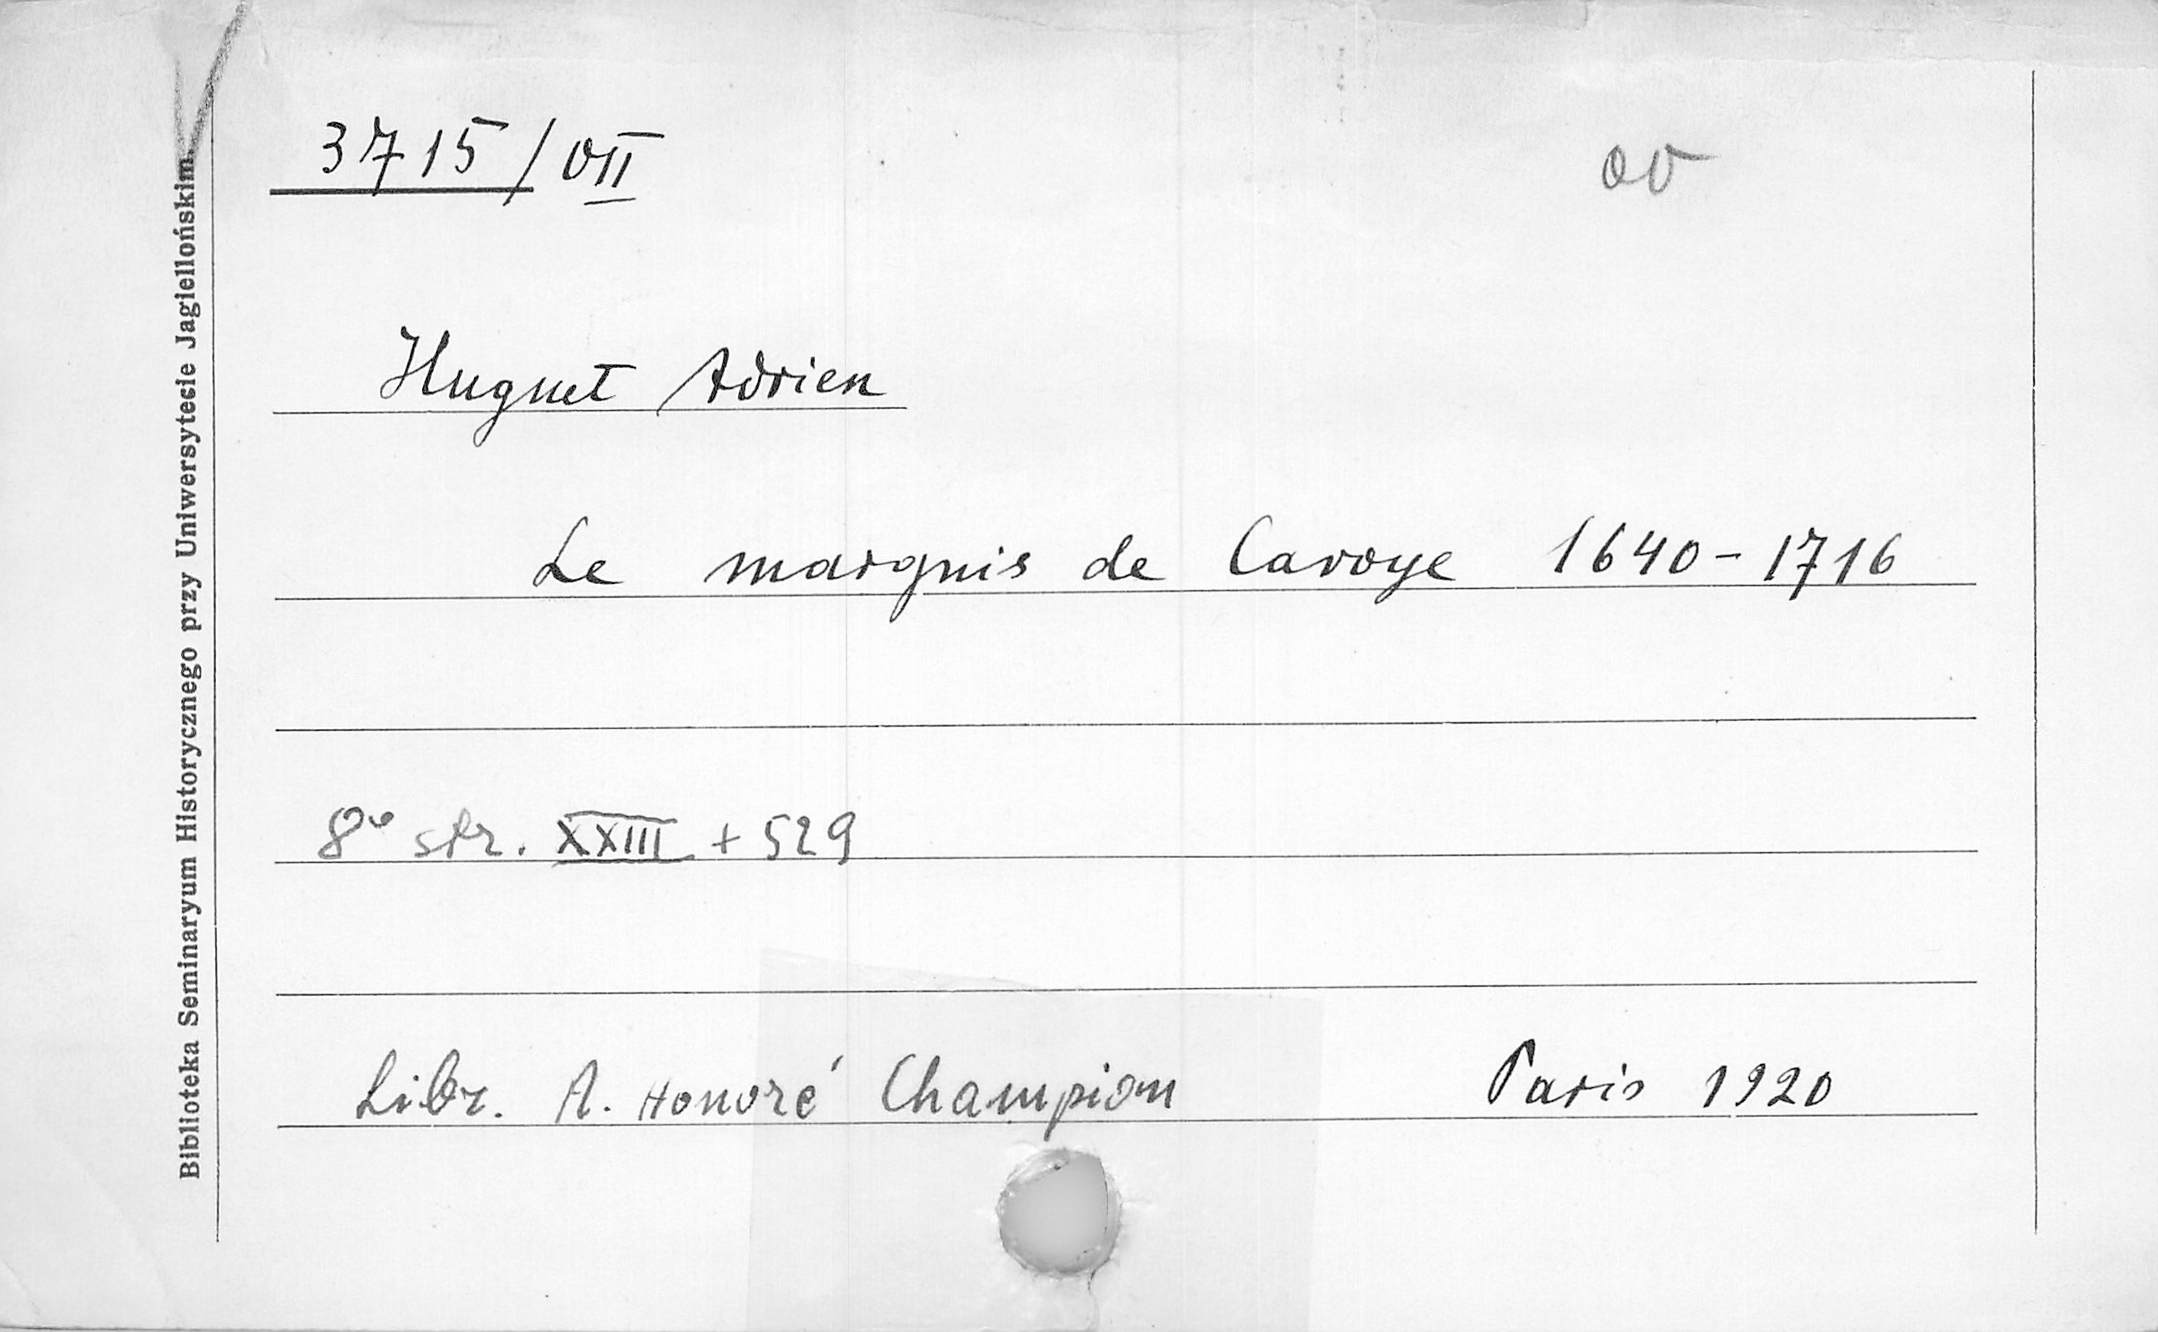 3715/VII
ov
Huguet Adrien
Le marquis de Cavoye 1640-1716
8o str. XXIII + 529
Libr. A. Honoré Champion Paris 1920
Biblioteka Seminaryum Historycznego przy Uniwersytecie Jagiellońskim.